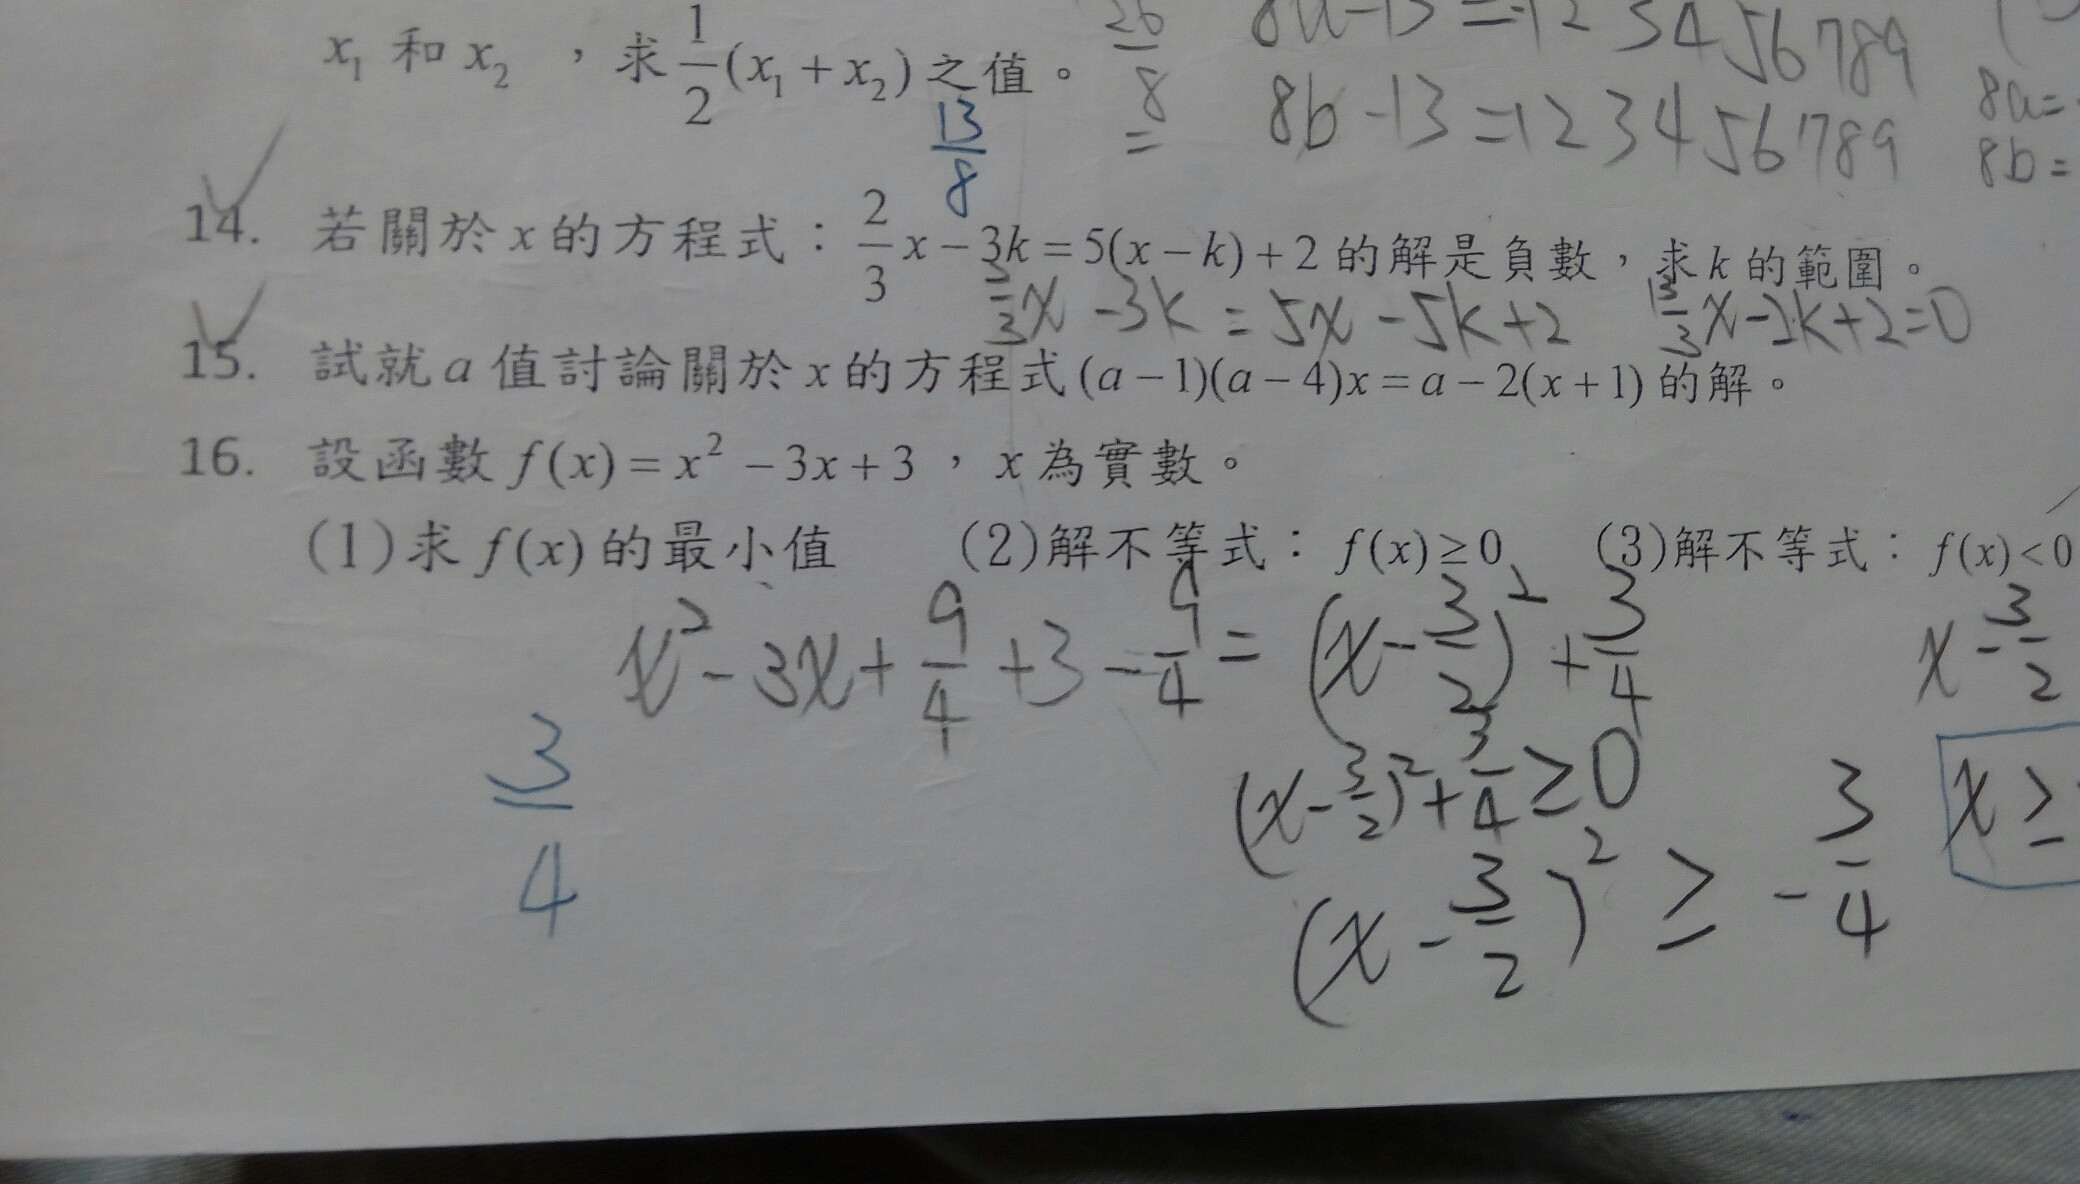 x₁ 和 x₂ ，求 1/2(x₁ + x₂) 之值。
13/8
8
8b - 13 = 123456789
8a=
8b=
14. 若關於 x 的方程式：2/3 x - 3k = 5(x - k) + 2 的解是負數，求 k 的範圍。
x - 3k = 5x - 5k + 2
13/3 x - 2k + 2 = 0
15. 試就 a 值討論關於 x 的方程式 (a - 1)(a - 4)x = a - 2(x + 1) 的解。
16. 設函數 f(x) = x² - 3x + 3 ，x 為實數。
(1)求 f(x) 的最小值 (2)解不等式：f(x) ≥ 0 (3)解不等式：f(x) < 0
x² - 3x + 9/4 + 3 - 9/4 = (x - 3/2)² + 3/4
x - 3/2
3/4
(x - 3/2)² + 3/4 ≥ 0
x ≥
(x - 3/2)² ≥ - 3/4